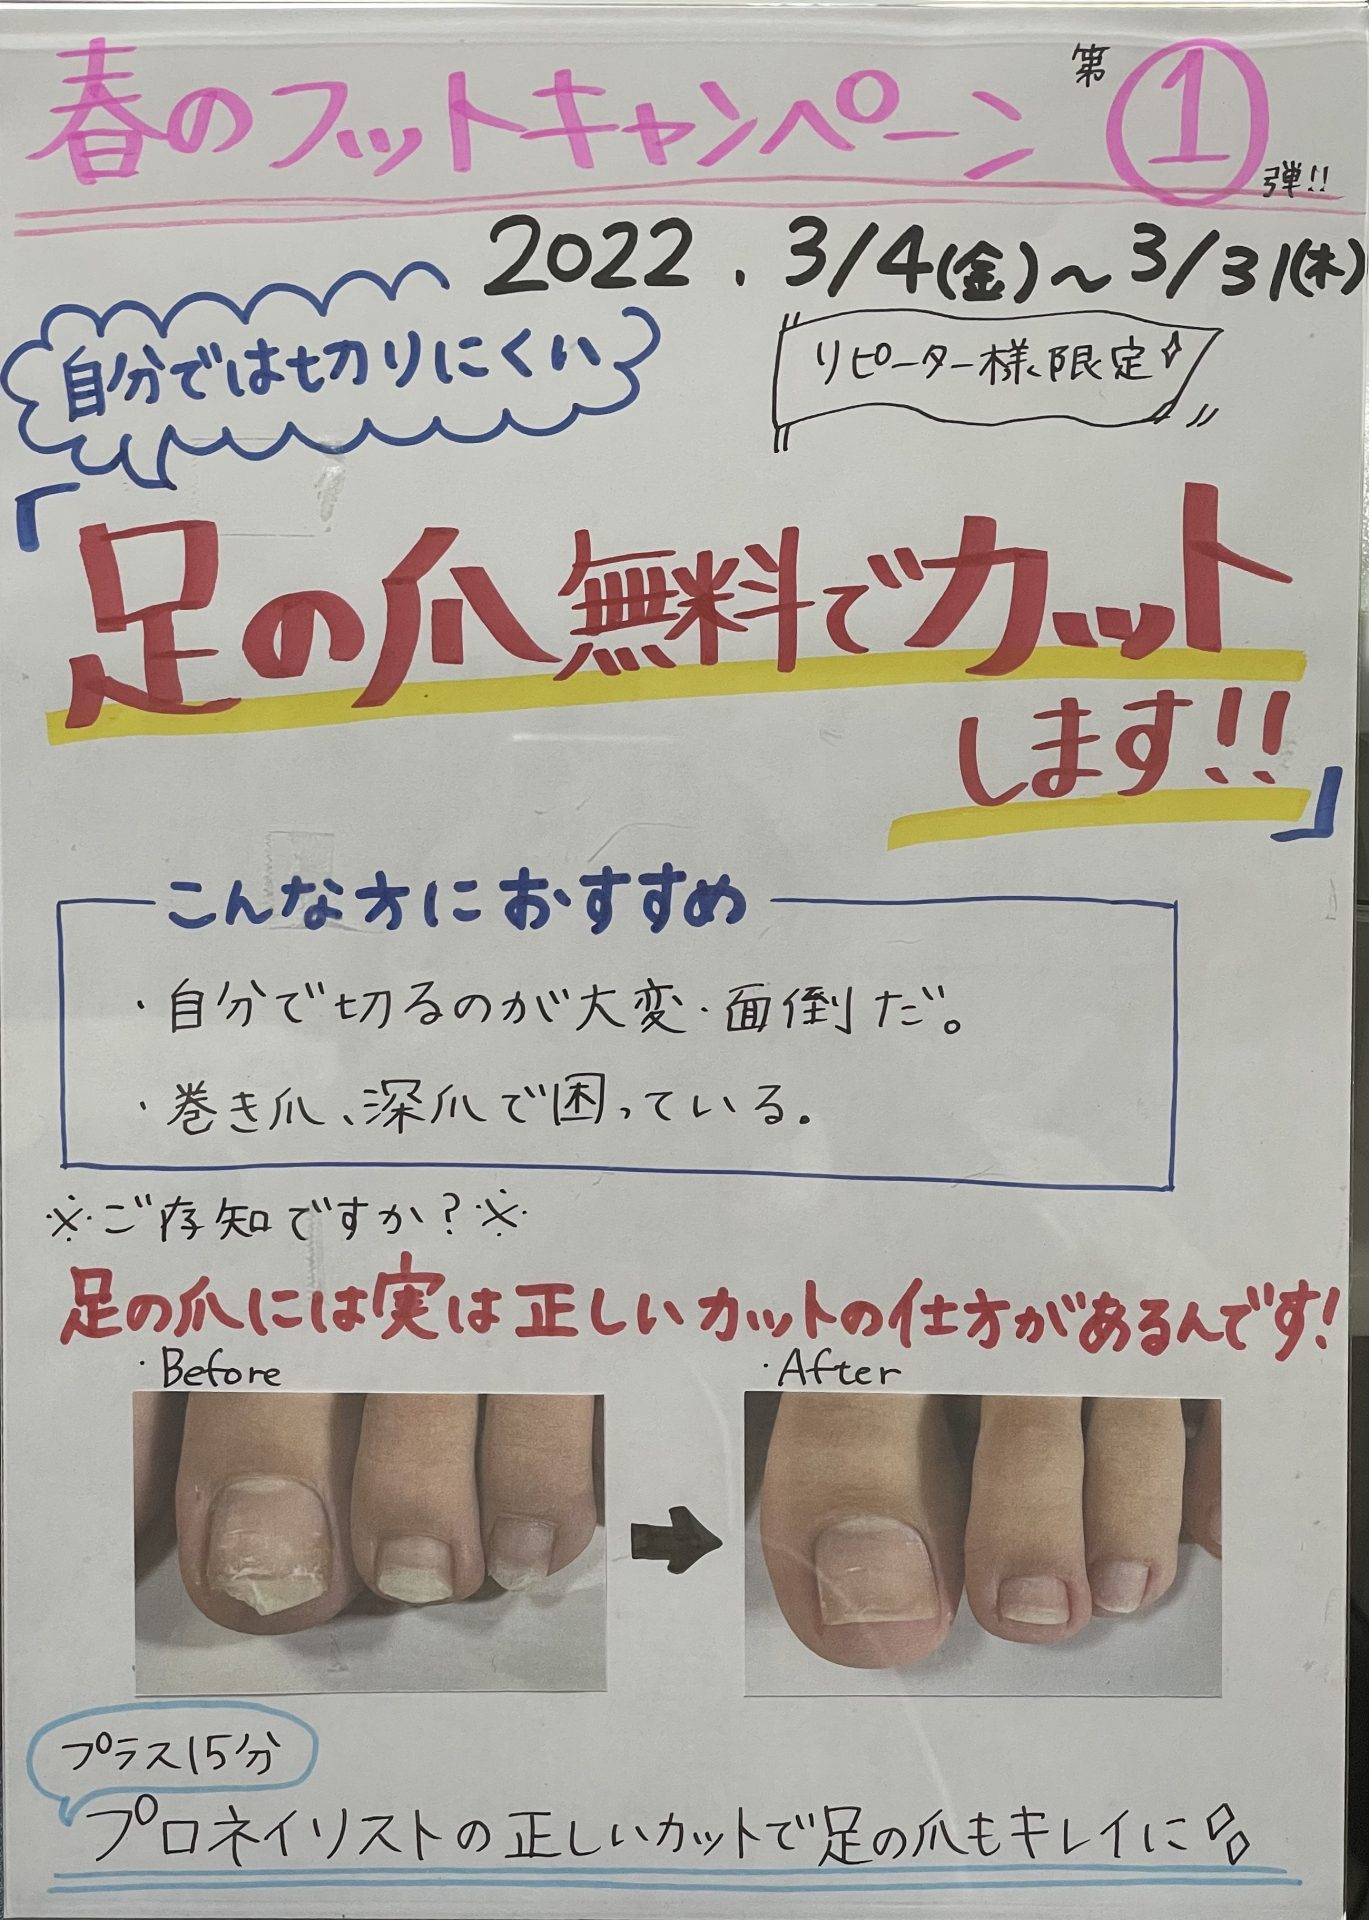 春のフットキャンペーン 第①弾!!
2022. 3/4(金)~3/31(木)
自分では切りにくい
リピーター様限定
「足の爪無料でカット
します!!」
こんな方におすすめ
・自分で切るのが大変・面倒だ。
・巻き爪、深爪で困っている。
※ご存知ですか?※
足の爪には実は正しいカットの仕方があるんです!
・Before
・After
プラス15分
プロネイリストの正しいカットで足の爪もキレイに